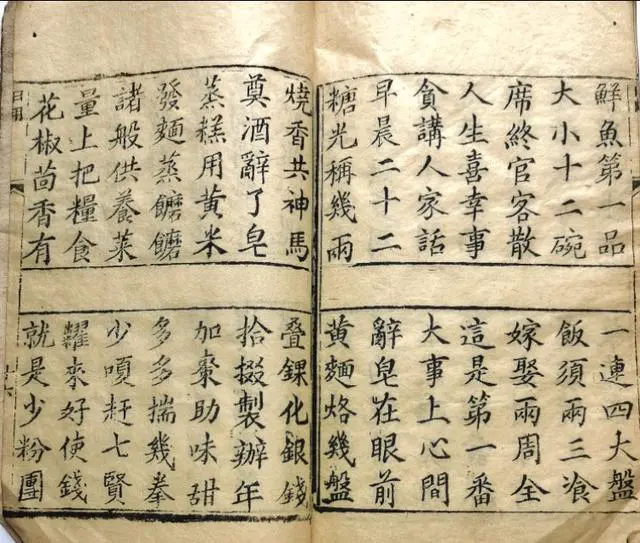 鮮魚第一品
一連四大盤
大小十二碗
飯須兩三飡
席終官客散
嫁娶兩周全
人生喜幸事
這是第一番
貪講人家話
大事上心間
早晨二十二
辭皂在眼前
糖光稱幾兩
黃麵烙幾盤
燒香共神馬
叠錁化銀錢
奠酒辭了皂
拾掇製辦年
蒸糕用黃米
加棗助味甜
發麵蒸饝饝
多多揣幾拳
諸般供養菜
少嗔赶七賢
量上把糧食
糶來好使錢
花椒茴香有
就是少粉團
日用